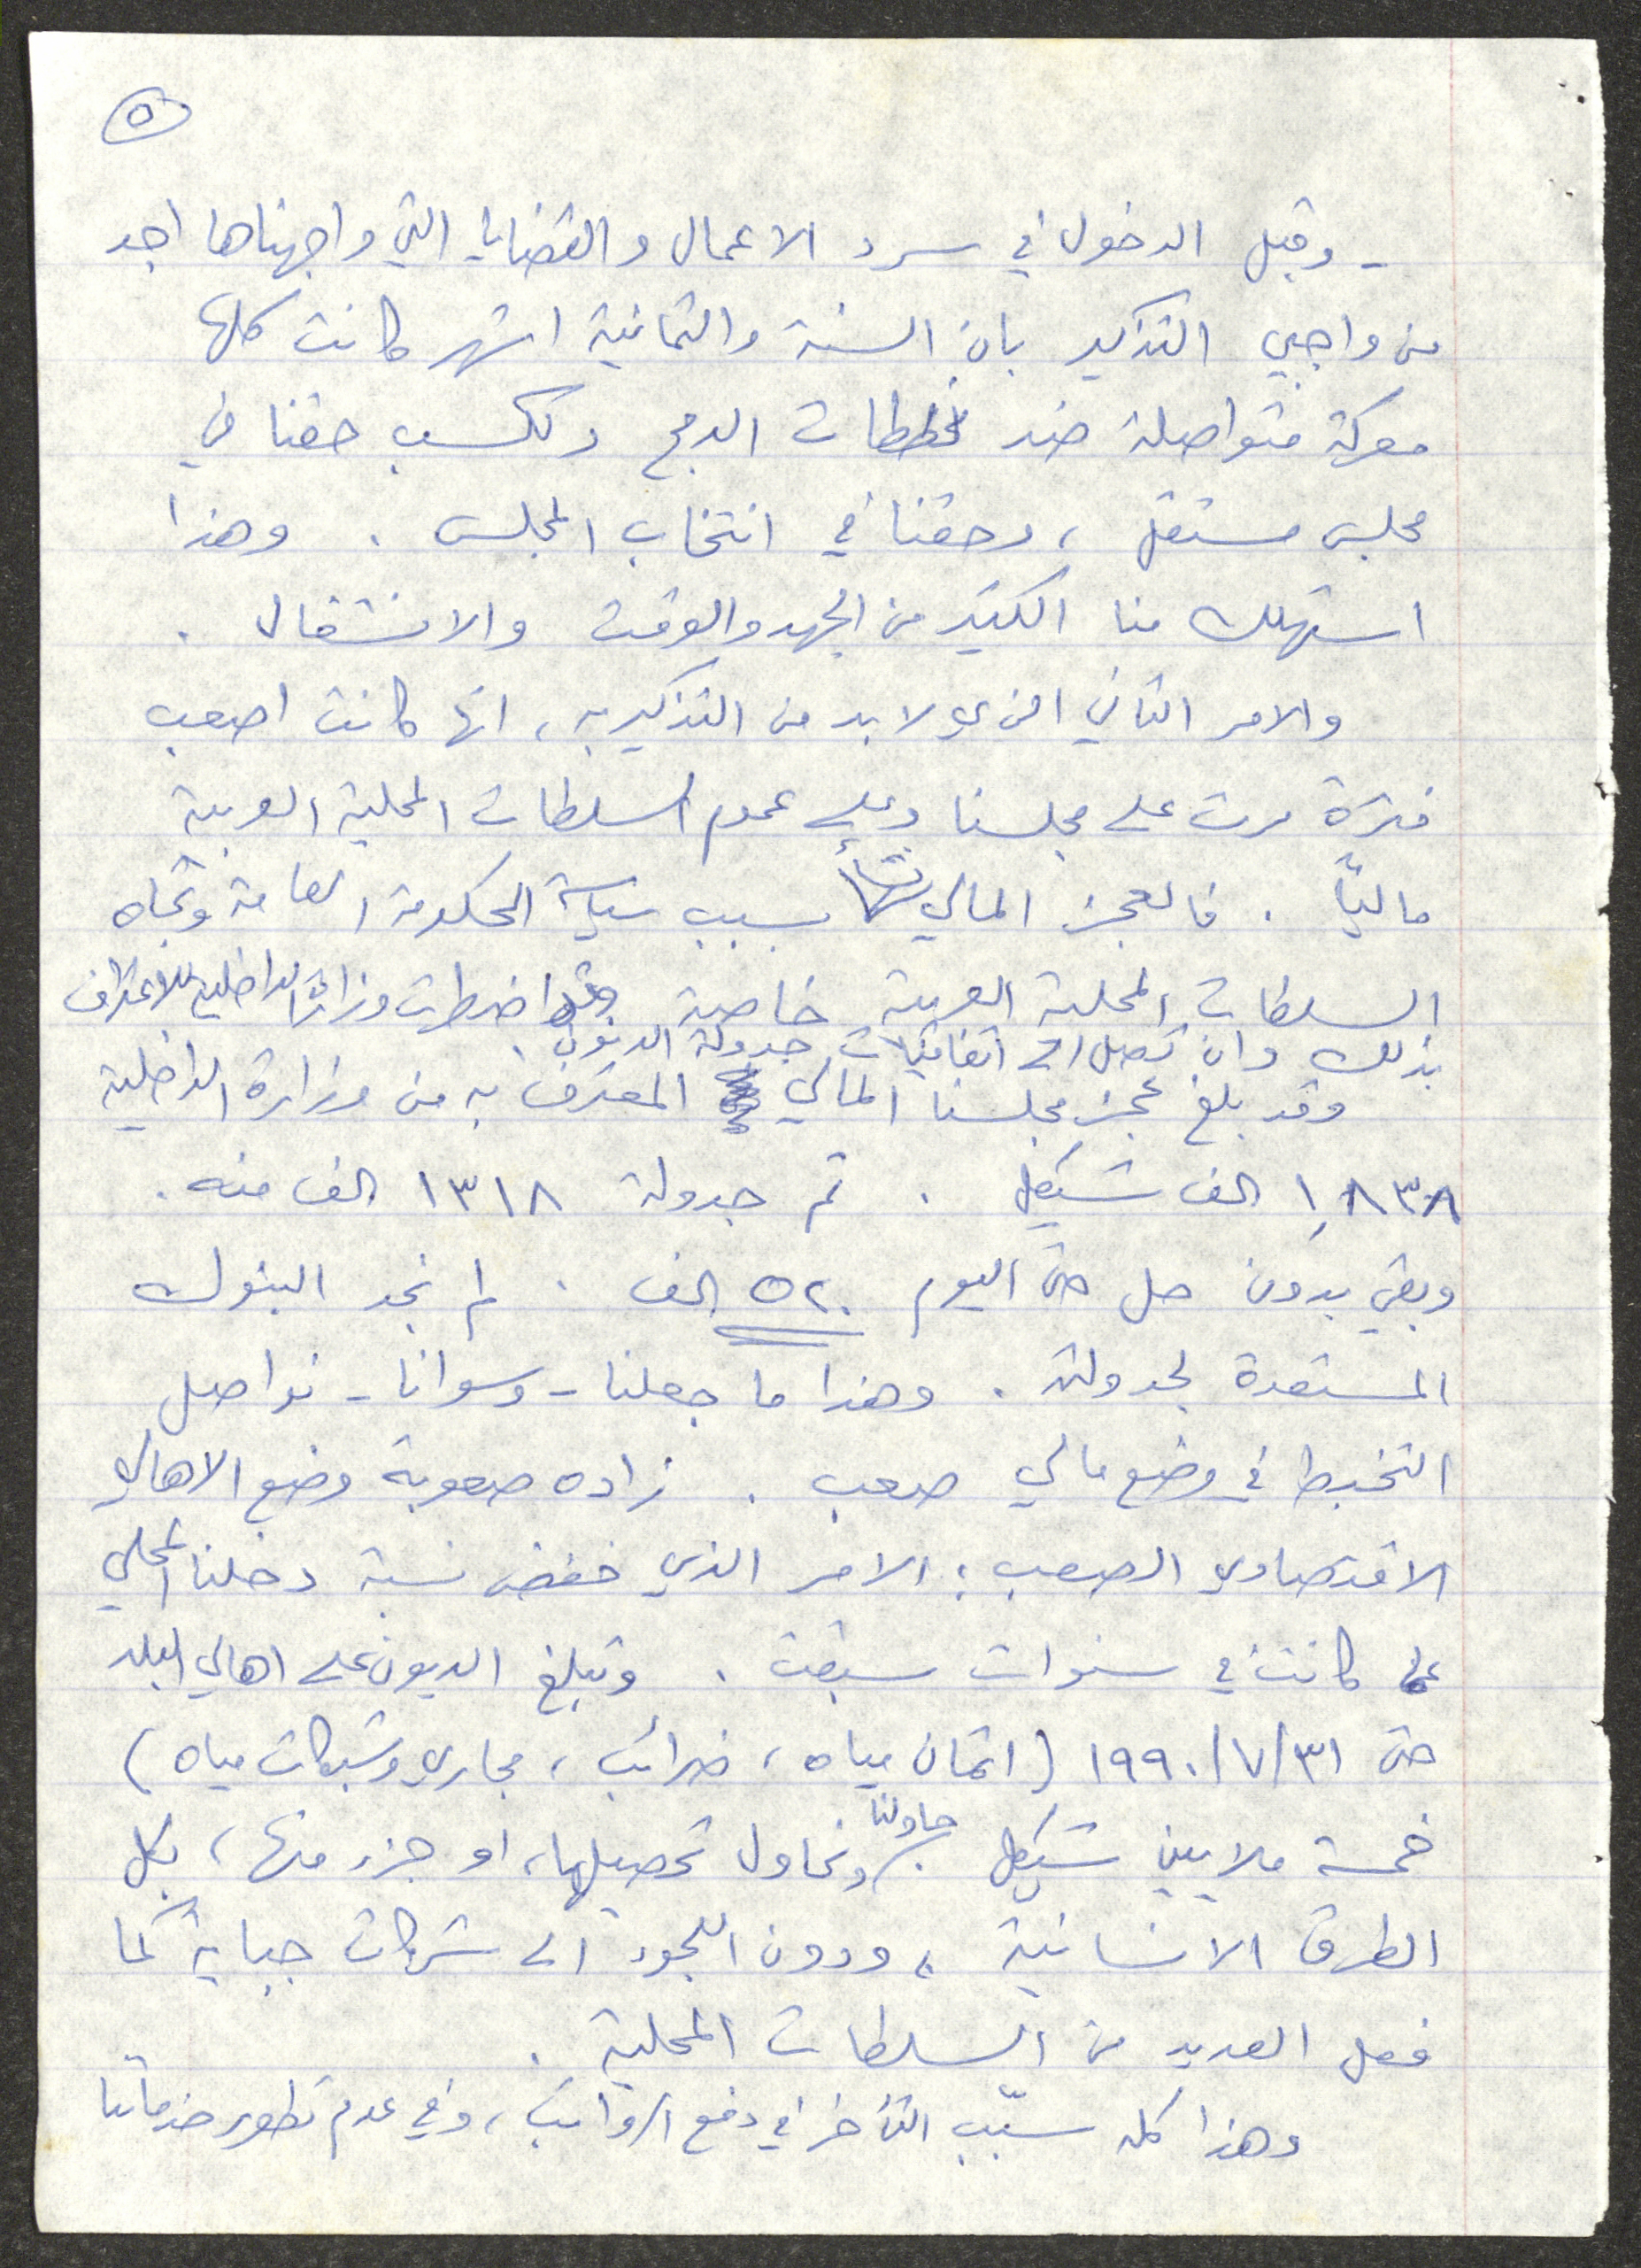 ٥
- وقبل الدخول في سرد الاعمال والقضايا التي واجهناها اجد
من واجبي التذكير بان السنة والثمانية اشهر كانت كلها
معركة متواصلة ضد مخططات الدمج ولكسب حقنا في
مجلس مستقل ، وحقنا في انتخاب المجلس . وهذا
استهلك منا الكثير من الجهد والوقت والانشغال .
والامر الثاني الذي لا بد من التذكير به ، انها كانت اصعب
فترة مرت على مجلسنا وعلى عموم السلطات المحلية العربية
ماليًا . فالعجز المالي نشأ بسبب سياسة الحكومة العامة وتجاه
السلطات المحلية العربية خاصة وقد اضطرت وزارة الداخلية للاعتراف
بذلك وان تصل الى اتفاقيات جدولة الديون .
وقد بلغ عجز مجلسنا المالي المعترف به من وزارة الداخلية
١,٨٣٨ الف شيكل . تم جدولة ١٣١٨ الف منه .
وبقي بدون حل حتى اليوم ٥٢٠ الف . لم نجد البنوك
المستعدة لجدولته . وهذا ما جعلنا - وسوانا - نواصل
التخبط في وضع مالي صعب . زاده صعوبة وضع الاهالي
الاقتصادي الصعب ؛ الامر الذي خفض نسبة دخلنا المحلي
عما كانت في سنوات سبقت . وتبلغ الديون على اهالي البلد
حتى ٣١/٧/١٩٩٠ (اثمان مياه ، ضرائب ، مجاري وشبكات مياه)
خمسة ملايين شيكل . حاولنا ونحاول تحصيلها ، او جزء منها ، بكل
الطرق الانسانية ، ودون اللجوء الى شركات جباية كما
فعل العديد من السلطات المحلية .
وهذا كله سبّب التأخر في دفع الرواتب ، وفي عدم تطوير خدماتنا